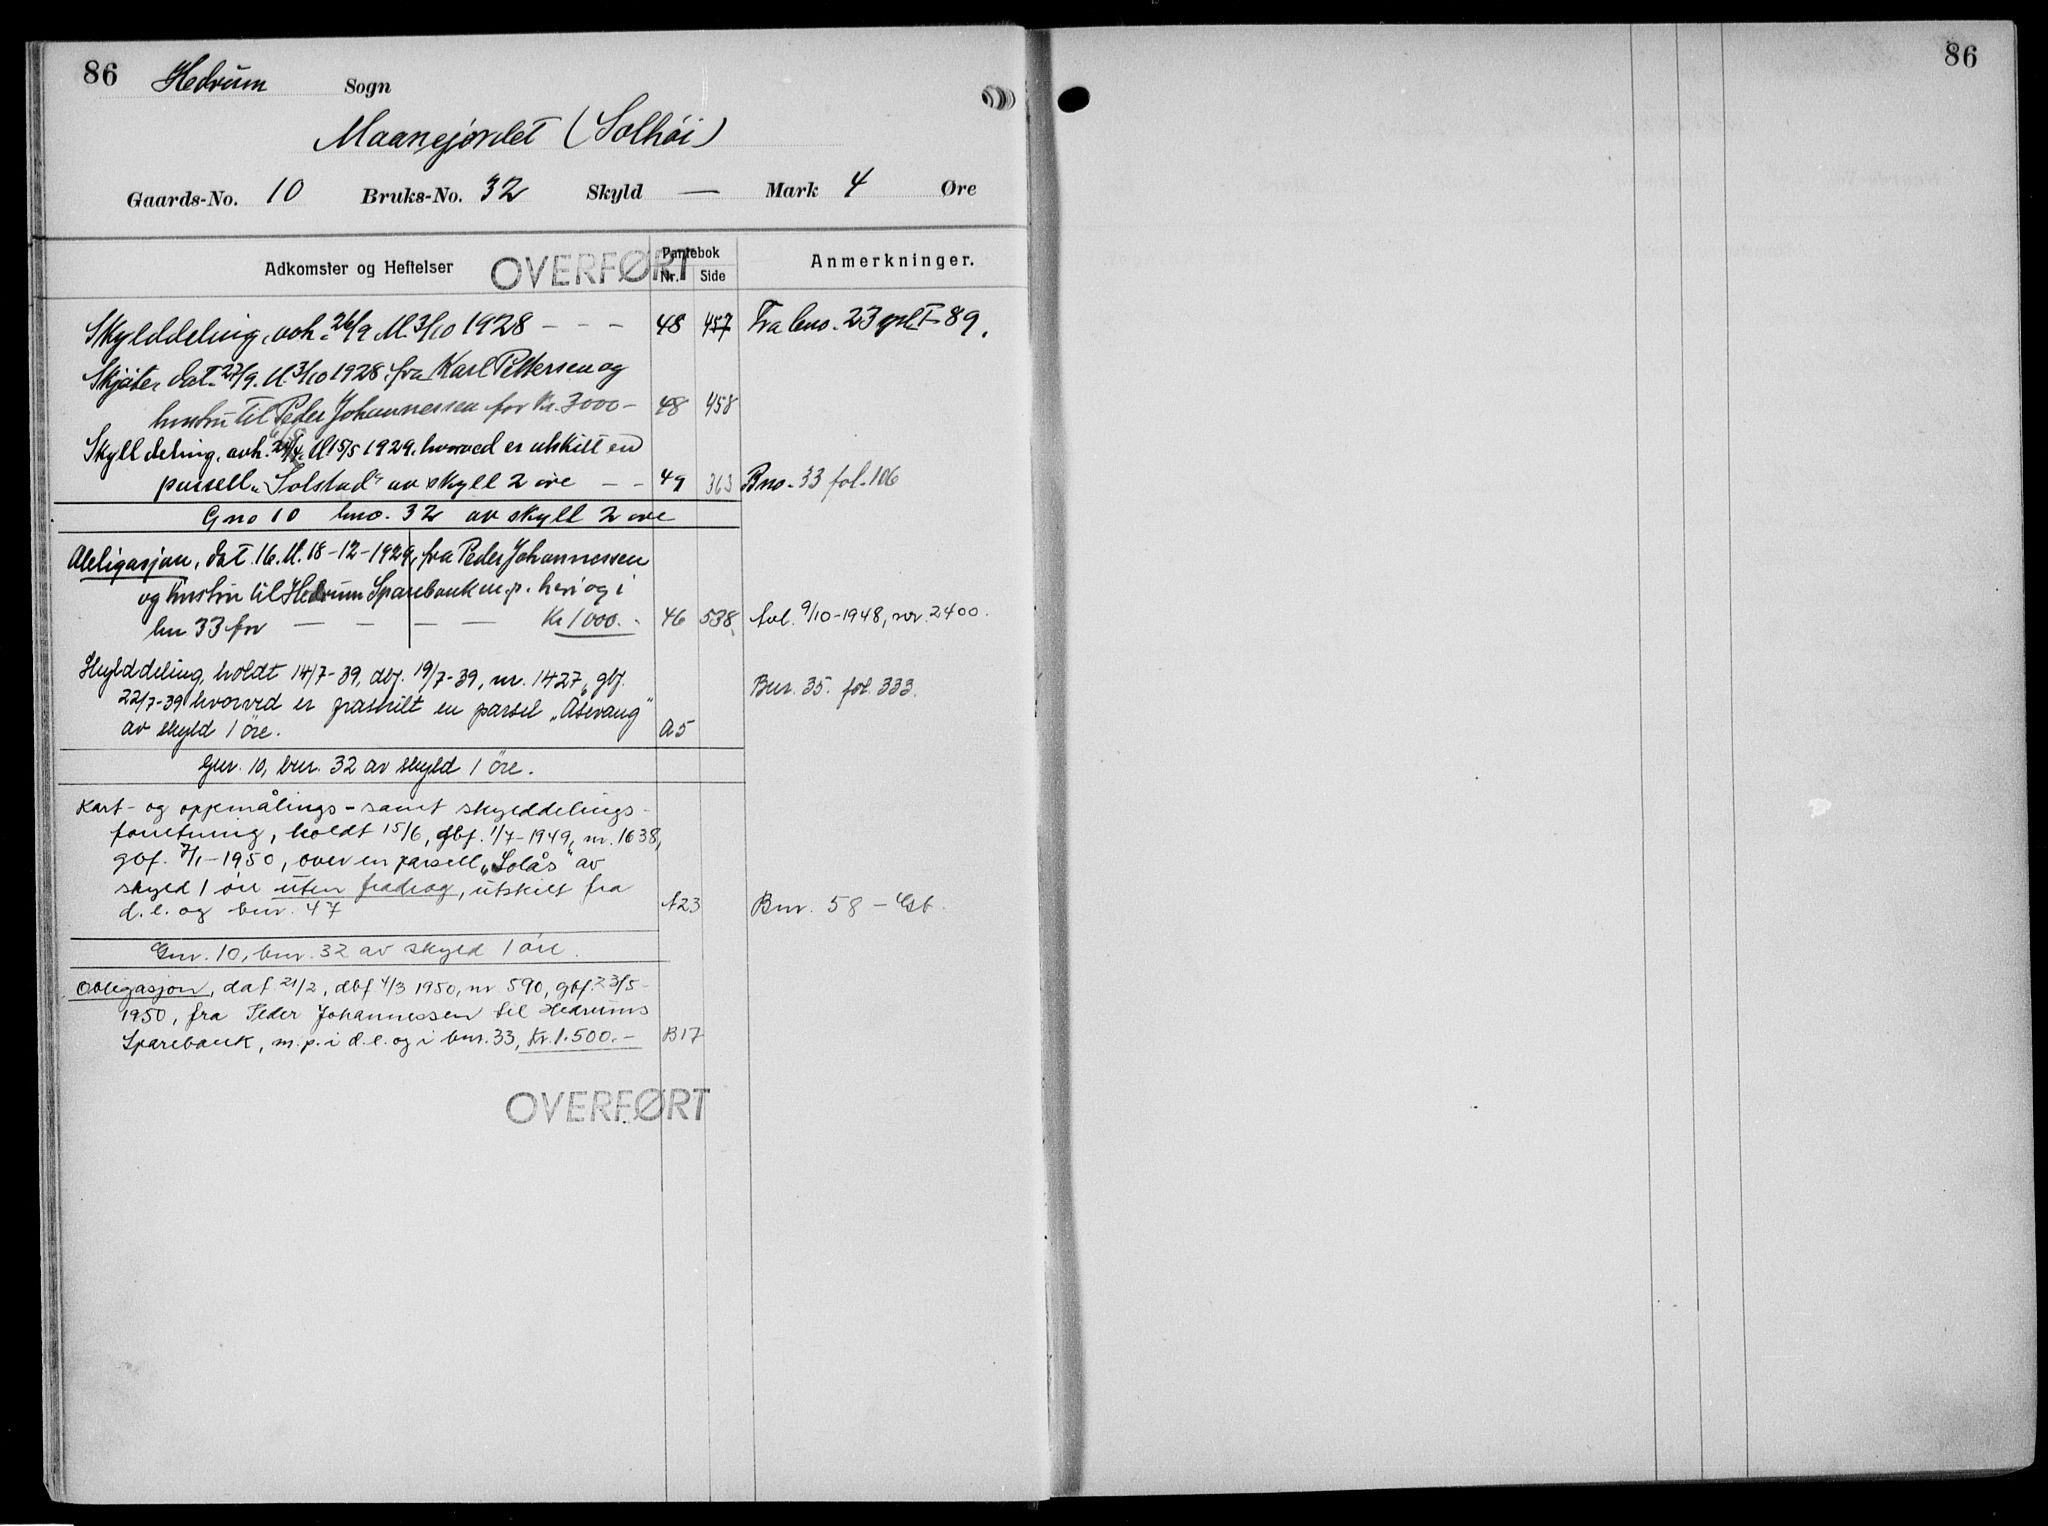 86 Hedrum Sogn
86
Maanejordet (Solhøi)
Gaards-No. 10 Bruks-No. 32 Skyld — Mark 4 Øre
Adkomster og Heftelser
OVERFØRT
Pantebok
Nr. Side
Anmerkninger.
Skylddeling, avh. 26/9 tl. 3/10 1928 - - - 48 457 Fra bno. 23 I 89.
Skjøte, dat. 27/9. tl. 3/10 1928, fra Karl Pettersen og
hustru til Peder Johannessen for kr. 3000- 48 458
Skylldeling, avh. 24/4. tl. 15/5 1929, hvorved er utskilt en
parsell „Solstad" av skyll 2 øre - - 49 363 Bno. 33 fol. 106
Gno 10 bno. 32 av skyll 2 øre
Obligasjon, dat. 16. tl. 18-12-1929, fra Peder Johannessen
og hustru til Hedrum Sparebank m.p. heri og i
bn 33 for — — — — Kr 1000.- 46 538. Avl. 9/10-1948, nr. 2400.
Skylddeling, holdt 14/7-39, dbf. 19/7-39, nr. 1427, gbf.
22/7-39 hvorved er fraskilt en parsel „Åsevang" Bnr. 35. fol. 333.
av skyld 1 øre. A5
Gnr. 10, bnr. 32 av skyld 1 öre.
Kart- og oppmålings- samt skylddelings-
forretning, holdt 15/6, dbf. 1/7-1949, nr. 1638,
gbf. 7/1-1950, over en parsell „Solås" av
skyld 1 øre uten fradrag, utskilt fra
d.e. og bnr. 47 A23 Bnr. 58 - Gb.
Gnr. 10, bnr. 32 av skyld 1 øre.
Obligasjon, dat 21/2, dbf 4/3 1950, nr 590, gbf. 23/5-
1950, fra Peder Johannessen til Hedrums
Sparebank, m.p. i d.e. og i bnr. 33, Kr. 1.500.- B17
OVERFØRT